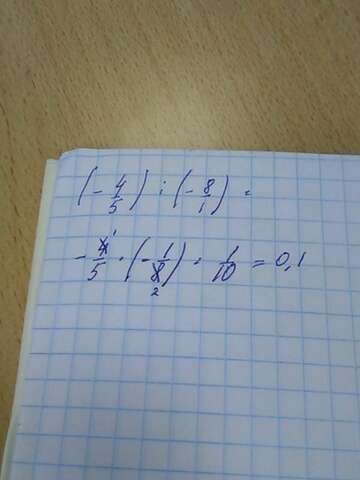 (-4/5) : (-8/1) =
-4̶¹/5 · (-1/8̶₂) = 1/10 = 0,1